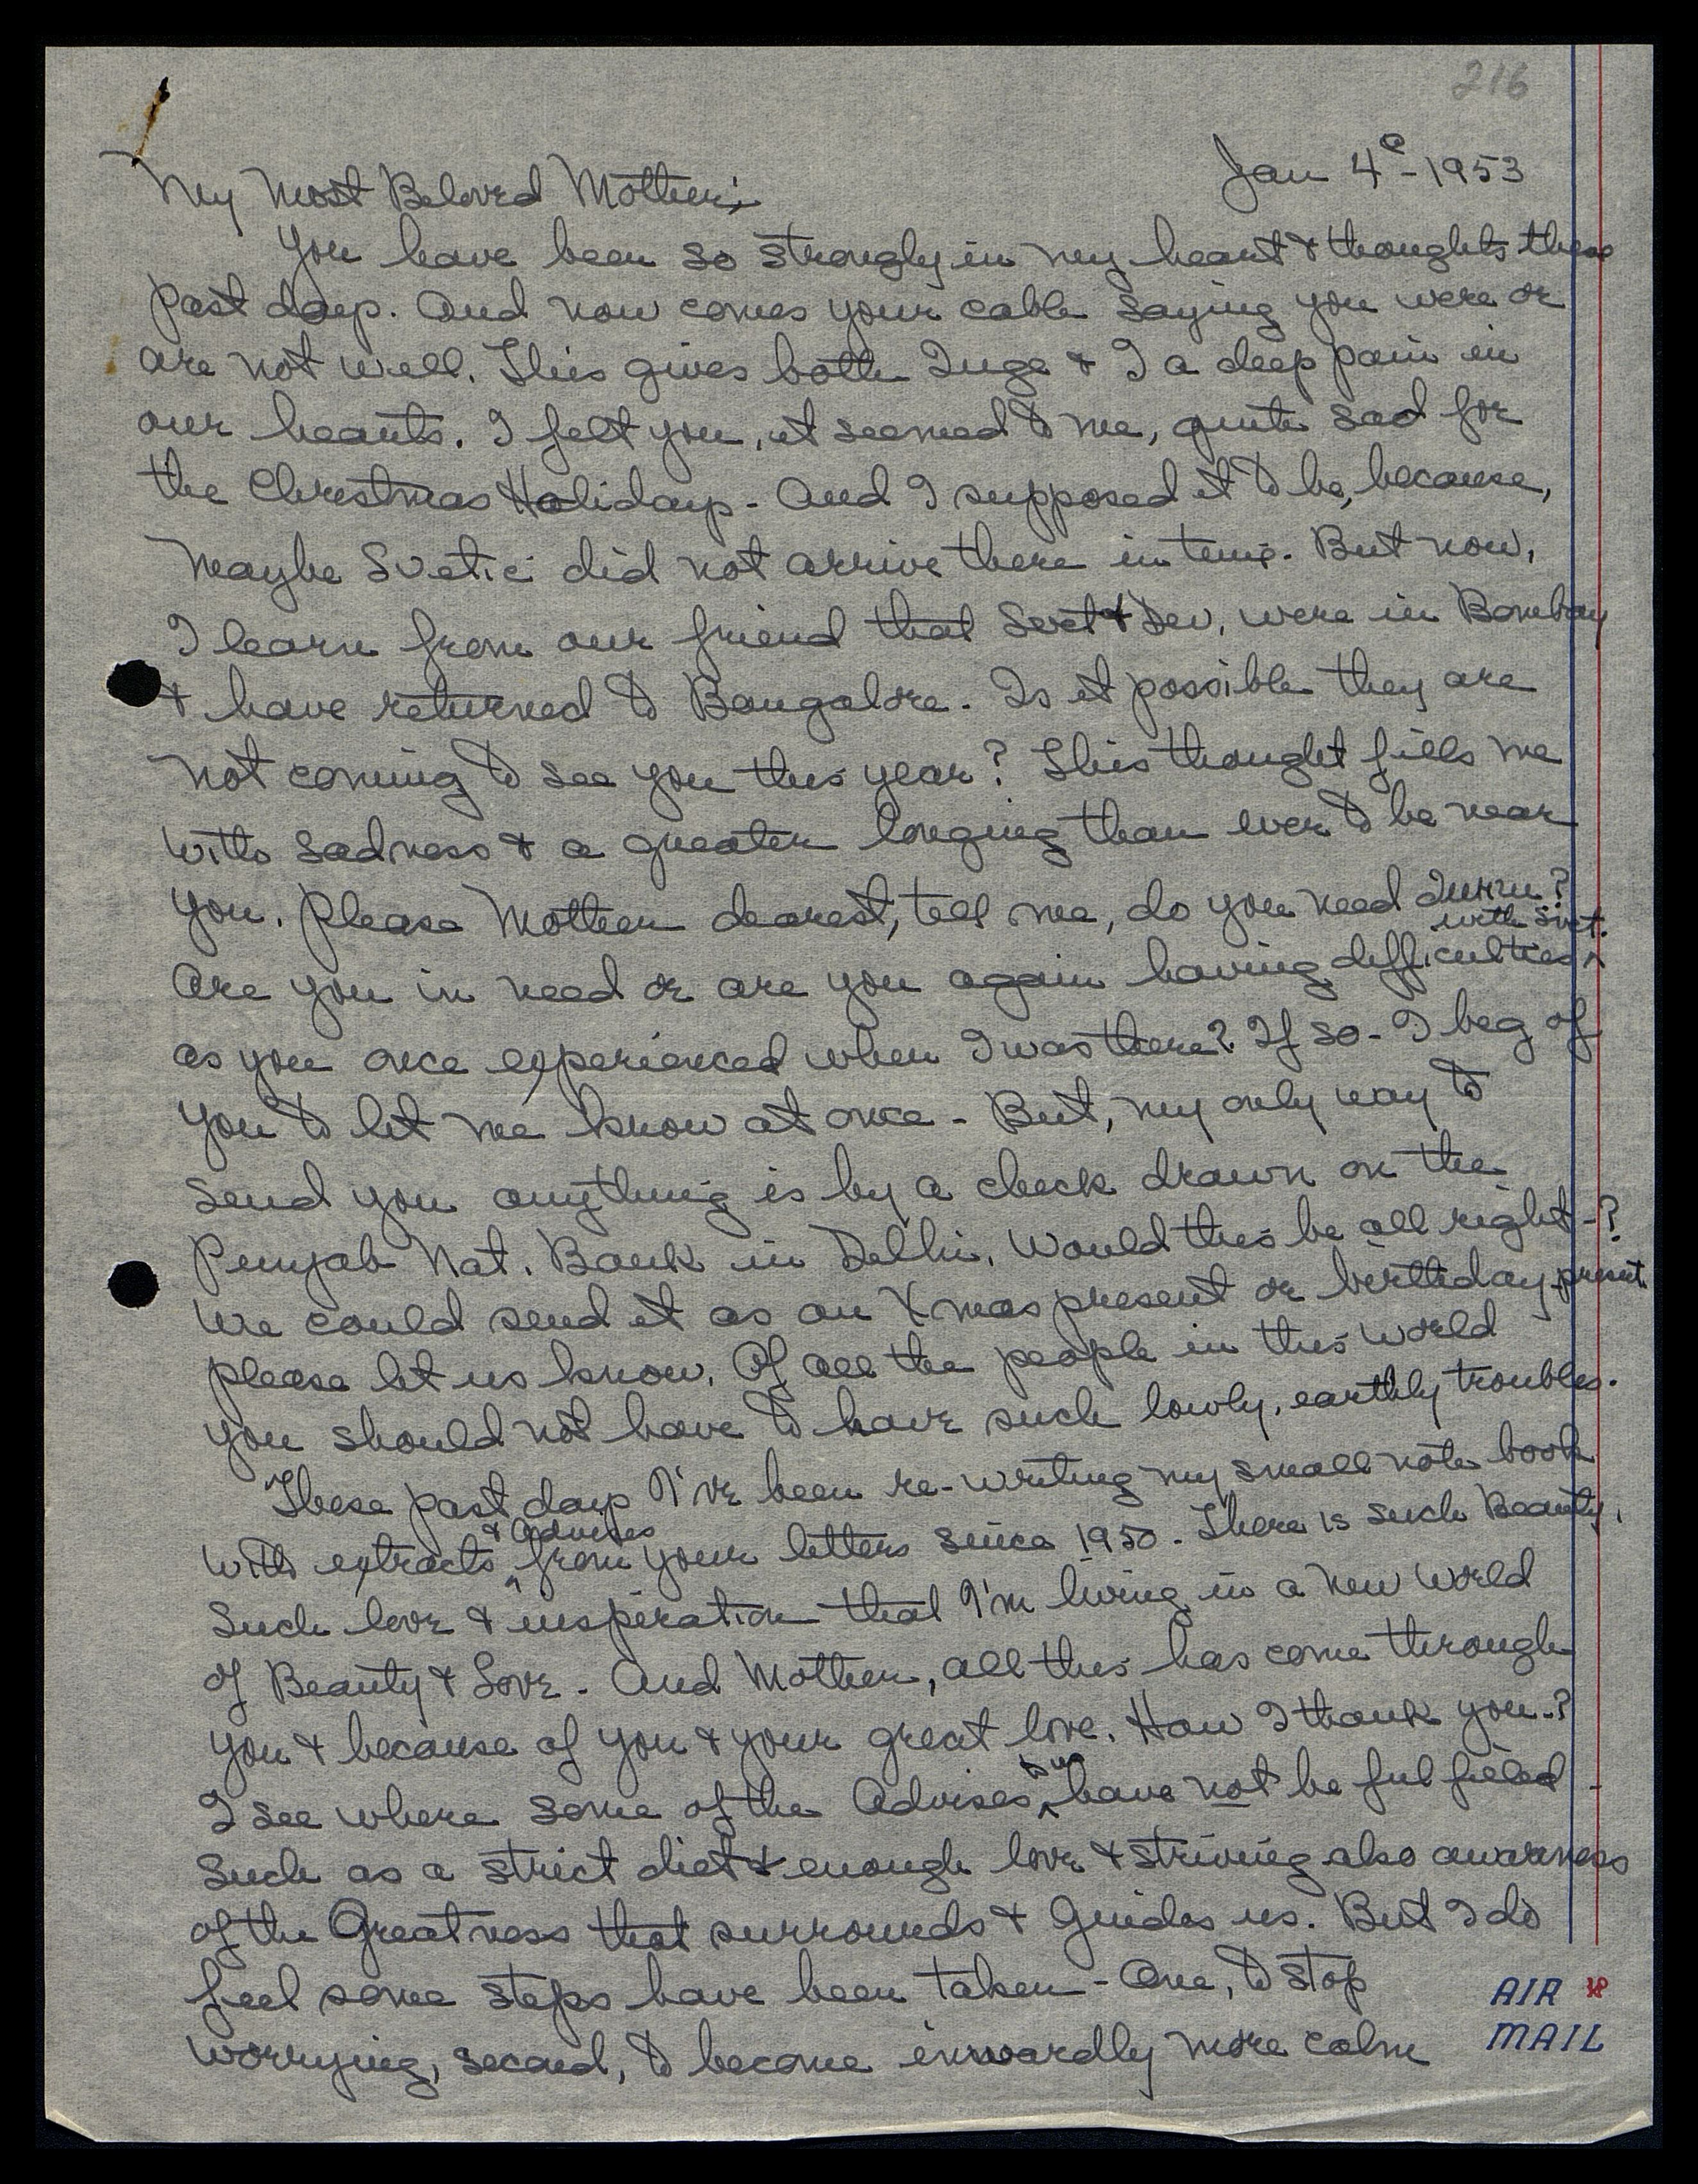 216
Jan 4e - 1953
My Most Beloved Mother;
You have been so strongly in my heart & thoughts these
past days. And now comes your cable saying you were or
are not well. This gives both Inge & I a deep pain in
our hearts. I felt you, it seemed to me, quite sad for
the Christmas Holidays - And I supposed it to be, because,
maybe Svetic did not arrive there in time. But now,
I learn from our friend that Svet & Dev. were in Bombay
& have returned to Bangalore. Is it possible they are
not coming to see you this year? This thought fills me
with sadness & a greater longing than ever to be near
you. Please Mother dearest, tell me, do you need
with Svet.
Are you in need or are you again having difficulties ^
as you once experienced when I was there? If so - I beg of
you to let me know at once - But, my only way to
send you anything is by a check drawn on the
Punjab Nat. Bank in Delhi. Would this be all right -?
We could send it as an Xmas present or birthday present.
please let us know. Of all the people in this world
you should not have to have such lowly, earthly troubles.
These past days I've been re-writing my small note book
& Advises
with extracts ^ from your letters since 1950. There is such Beauty,
such love & inspiration that I'm living in a new world
of Beauty & Love. And Mother, all this has come through
you & because of you & your great love. How I thank you.?
I see where some of the Advises ^ have not be fulfilled -
Such as a strict diet & enough love & striving also awareness
of the Greatness that surrounds & Guides us. But I do
feel some steps have been taken - One, to stop
worrying, second, to become inwardly more calm
AIR
MAIL